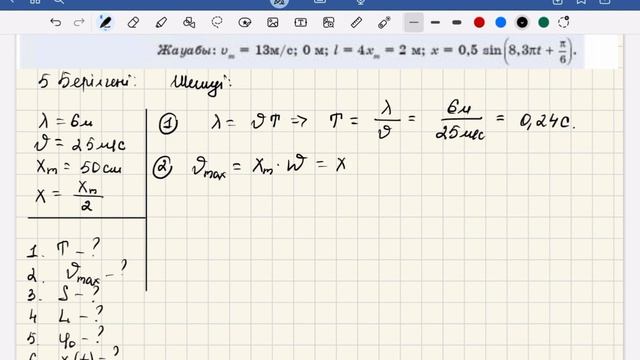 Жауабы: υₘ = 13м/с; 0 м; l = 4xₘ = 2 м; x = 0,5 sin(8,3πt + π/6).
5 Берілгені: Шешуі:
λ = 6м
ϑ = 25м/с
Xₘ = 50см
X = Xₘ/2
1. T - ?
2. ϑmax - ?
3. S - ?
4 L - ?
5. φ₀ - ?
6 x(t) - ?
① λ = ϑT => T = λ/ϑ = 6м/25м/с = 0,24с.
② ϑmax = Xₘ · W = X